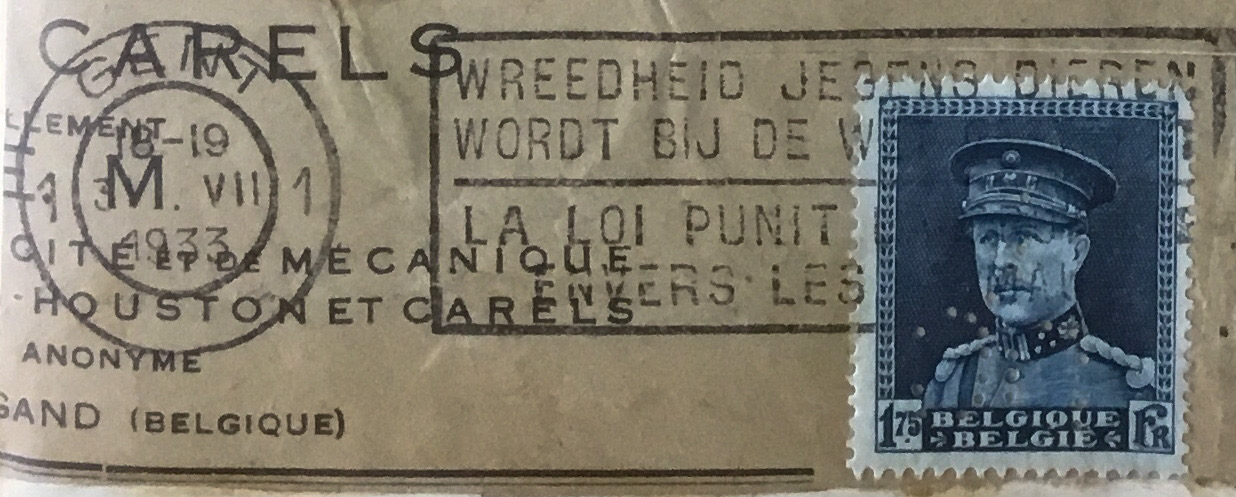 CARELS
GENT
LLEMENT
18-19
1 3 M. VII 1
1933
CITÉ ET DE MÉCANIQUE
HOUSTON ET CARELS
ANONYME
GAND (BELGIQUE)
WREEDHEID JEGENS DIEREN
WORDT BIJ DE W
LA LOI PUNIT
ENVERS LES
1.75 BELGIQUE FR
BELGIE